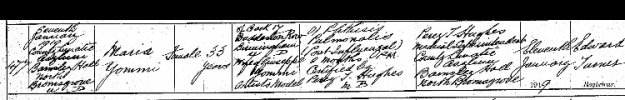 477
Seventh
January
1919
County Lunatic
Asylum
Barnsley Hall
North
Bromsgrove
R.D.
Maria
Yommi
Female
33
years
of Back 7
Bartholomew Row
Birmingham
Wife of Giuseppe
Yommi
Artists Model
(1) Phthisis
Pulmonalis
(Post Influenzal)
6 months P.M.
Certified by
Percy T. Hughes
M B
Percy T Hughes
Medical Superintendent
County Lunatic
Asylum
Barnsley Hall
North Bromsgrove
Eleventh
January
1919
Edward
Turner
Registrar.